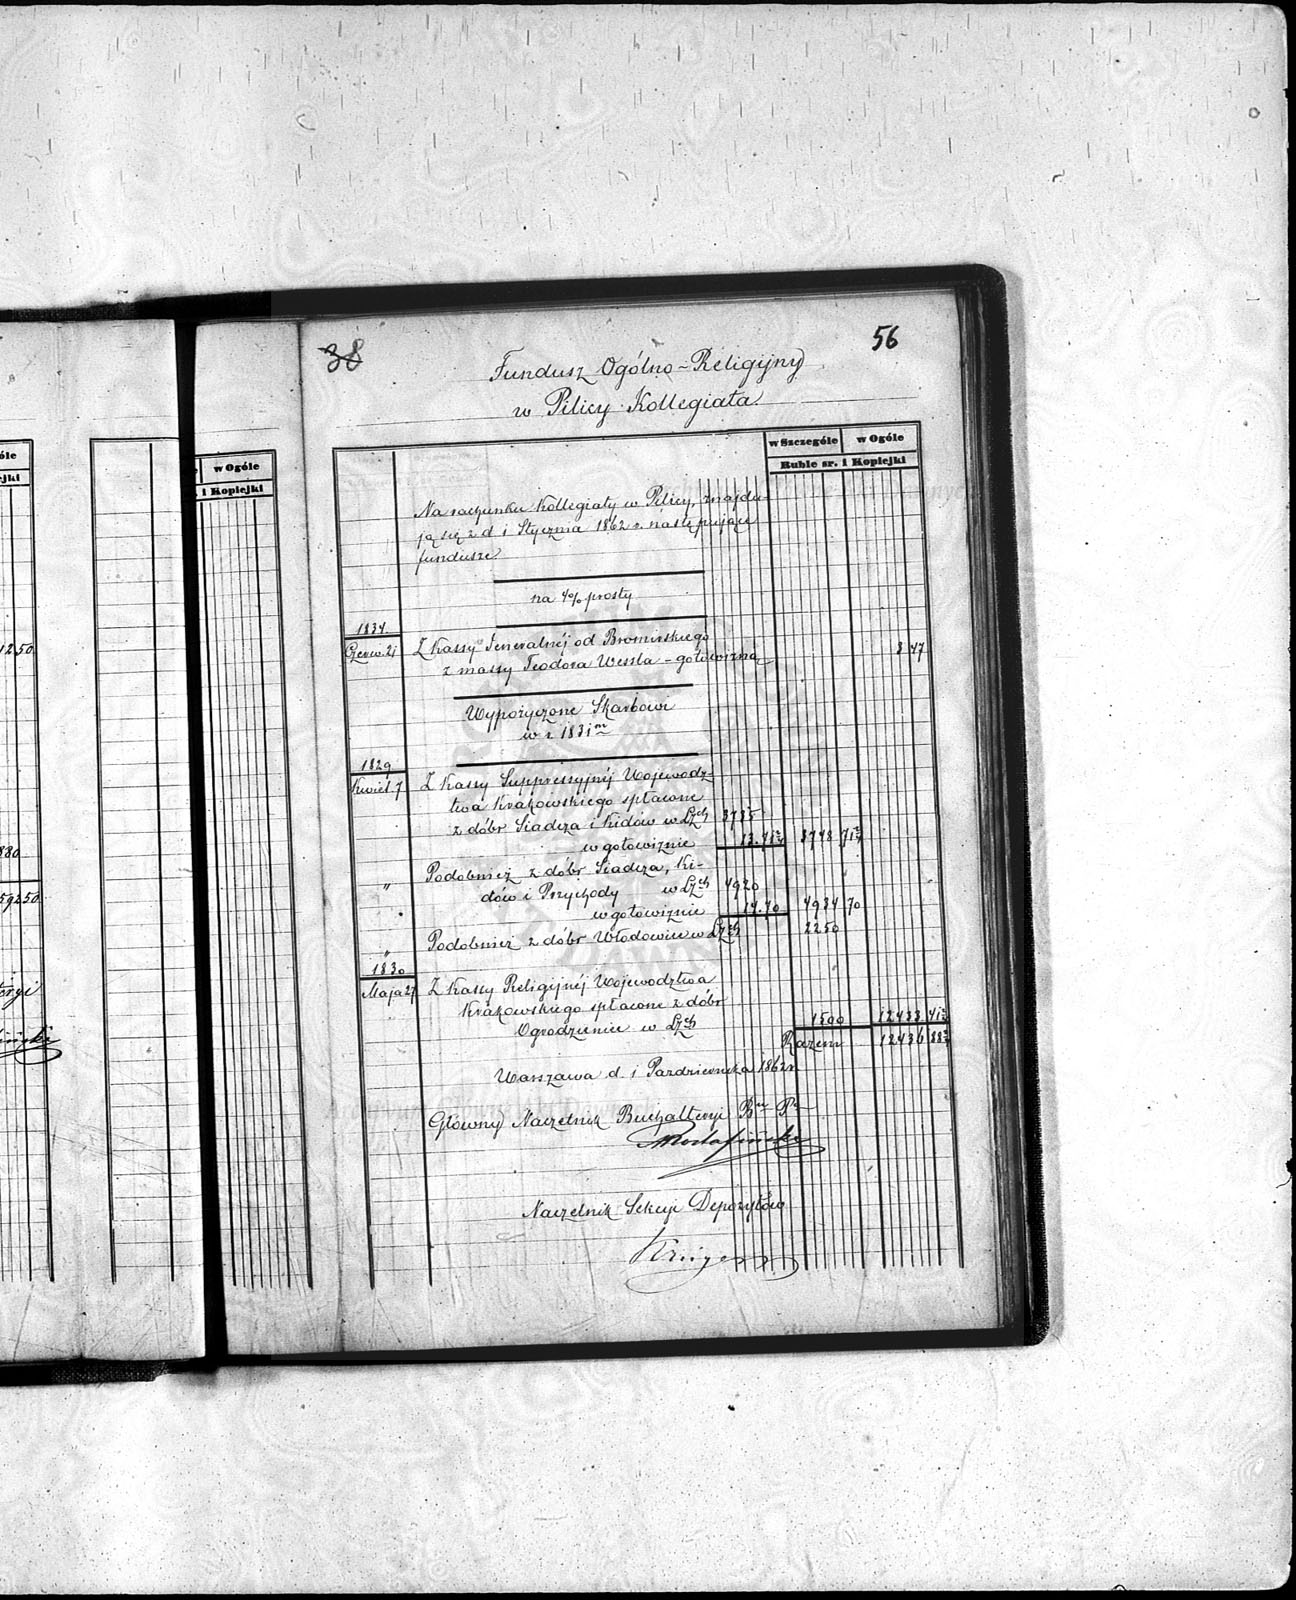 38
56
Fundusz Ogólno-Religijny
w Pilicy Kollegiata.
w Szczególe w Ogóle
Ruble sr. i Kopiejki
w Ogóle
i Kopiejki
Na rachunku Kollegiaty w Pilicy, znajdu-
ją się z d 1 Stycznia 1862 r. następujące
fundusze
na 4% prosty
1834.
Czerw. 21 Z Kassy Jeneralnéj od Bromirskiego
z massy Teodora Wessla - gotowizną 3 47
Wypożyczone Skarbowi
w r. 1831m
1829
Kwiet. 7 Z Kassy Suppressyjnéj Wojewódz-
twa Krakowskiego spłacone
z dóbr Siadcza i Kidów w Lzch 3735
w gotowiznie 13.71½ 3748 71½
" Podobnież z dóbr Siadcza, Ki-
dów i Przychody w Lzch 4920
w gotowiznie 14.70 4934 70
" Podobnież z dóbr Włodowice w Lzch 2250
1830
Maja 27 Z Kassy Religijnéj Województwa
Krakowskiego spłacone z dóbr
Ogrodzieniec w Lzch 1500 12433 41½
Razem 12436 88½
Warszawa d. 1 Pazdziernika 1862 r.
Główny Naczelnik Buchalteryi
Naczelnik Sekcyi Depozytów
1250
880
59250
teryi